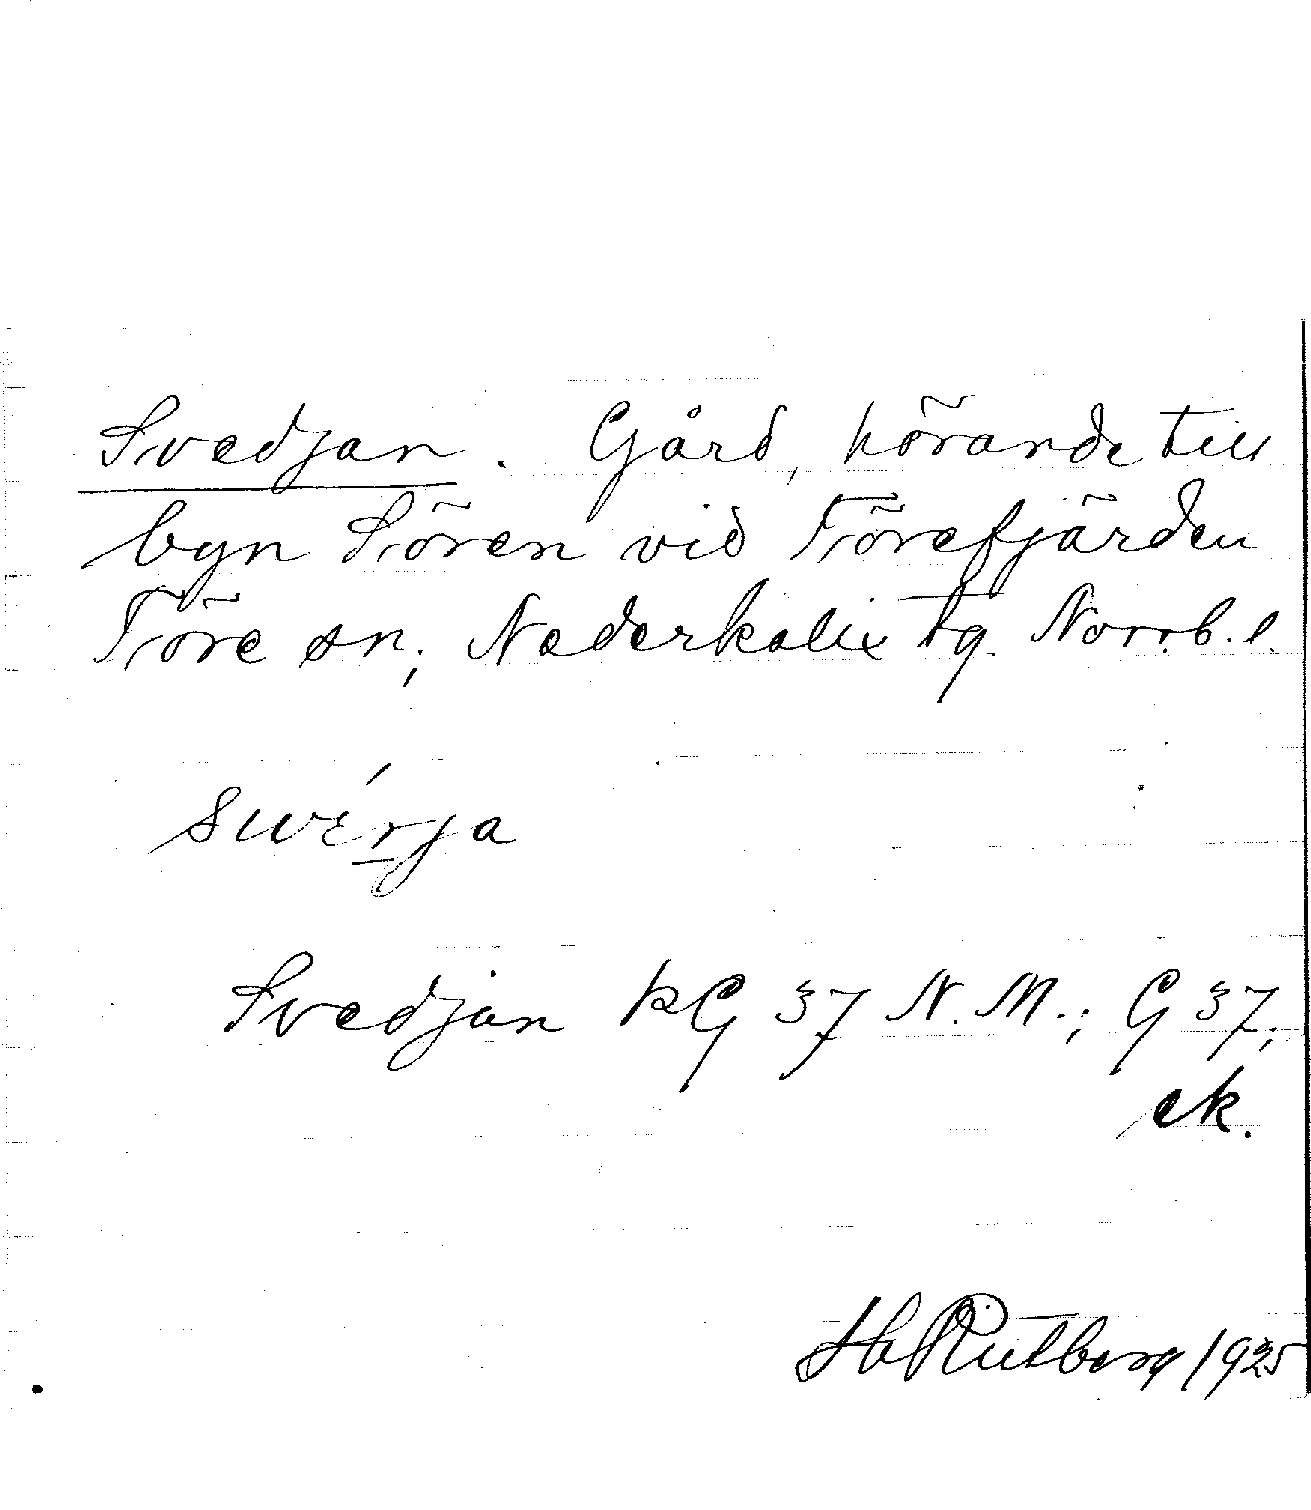 Svedjan. Gård, hörande till
byn Sören vid Törefjärden
Töre sn; Nederkalix tg. Norrb. l.
Svedjan kG 37 N. M.; G 37;
ek.
H Rutberg 1925